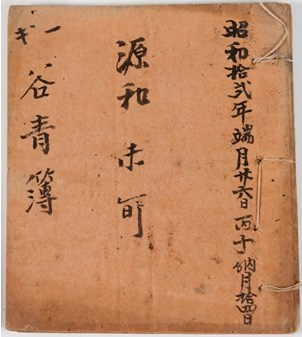 昭和拾弍年端月廿六日丙子納月拾四日
源和未
一谷青簿